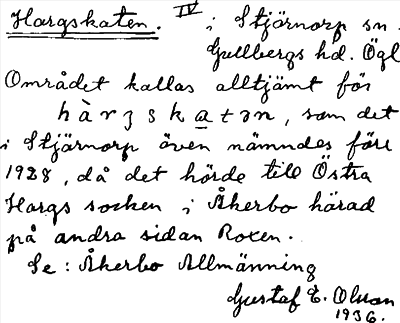 Hargskaten. IV i Stjärnorp sn.
Gullbergs hd. Ögl
Området kallas alltjämt för
hàrʒskatən, som det
i Stjärnorp även nämndes före
1928, då det hörde till Östra
Hargs socken i Åkerbo härad
på andra sidan Roxen.
Se: Åkerbo Allmänning
Gustaf E. Olsson
1936.